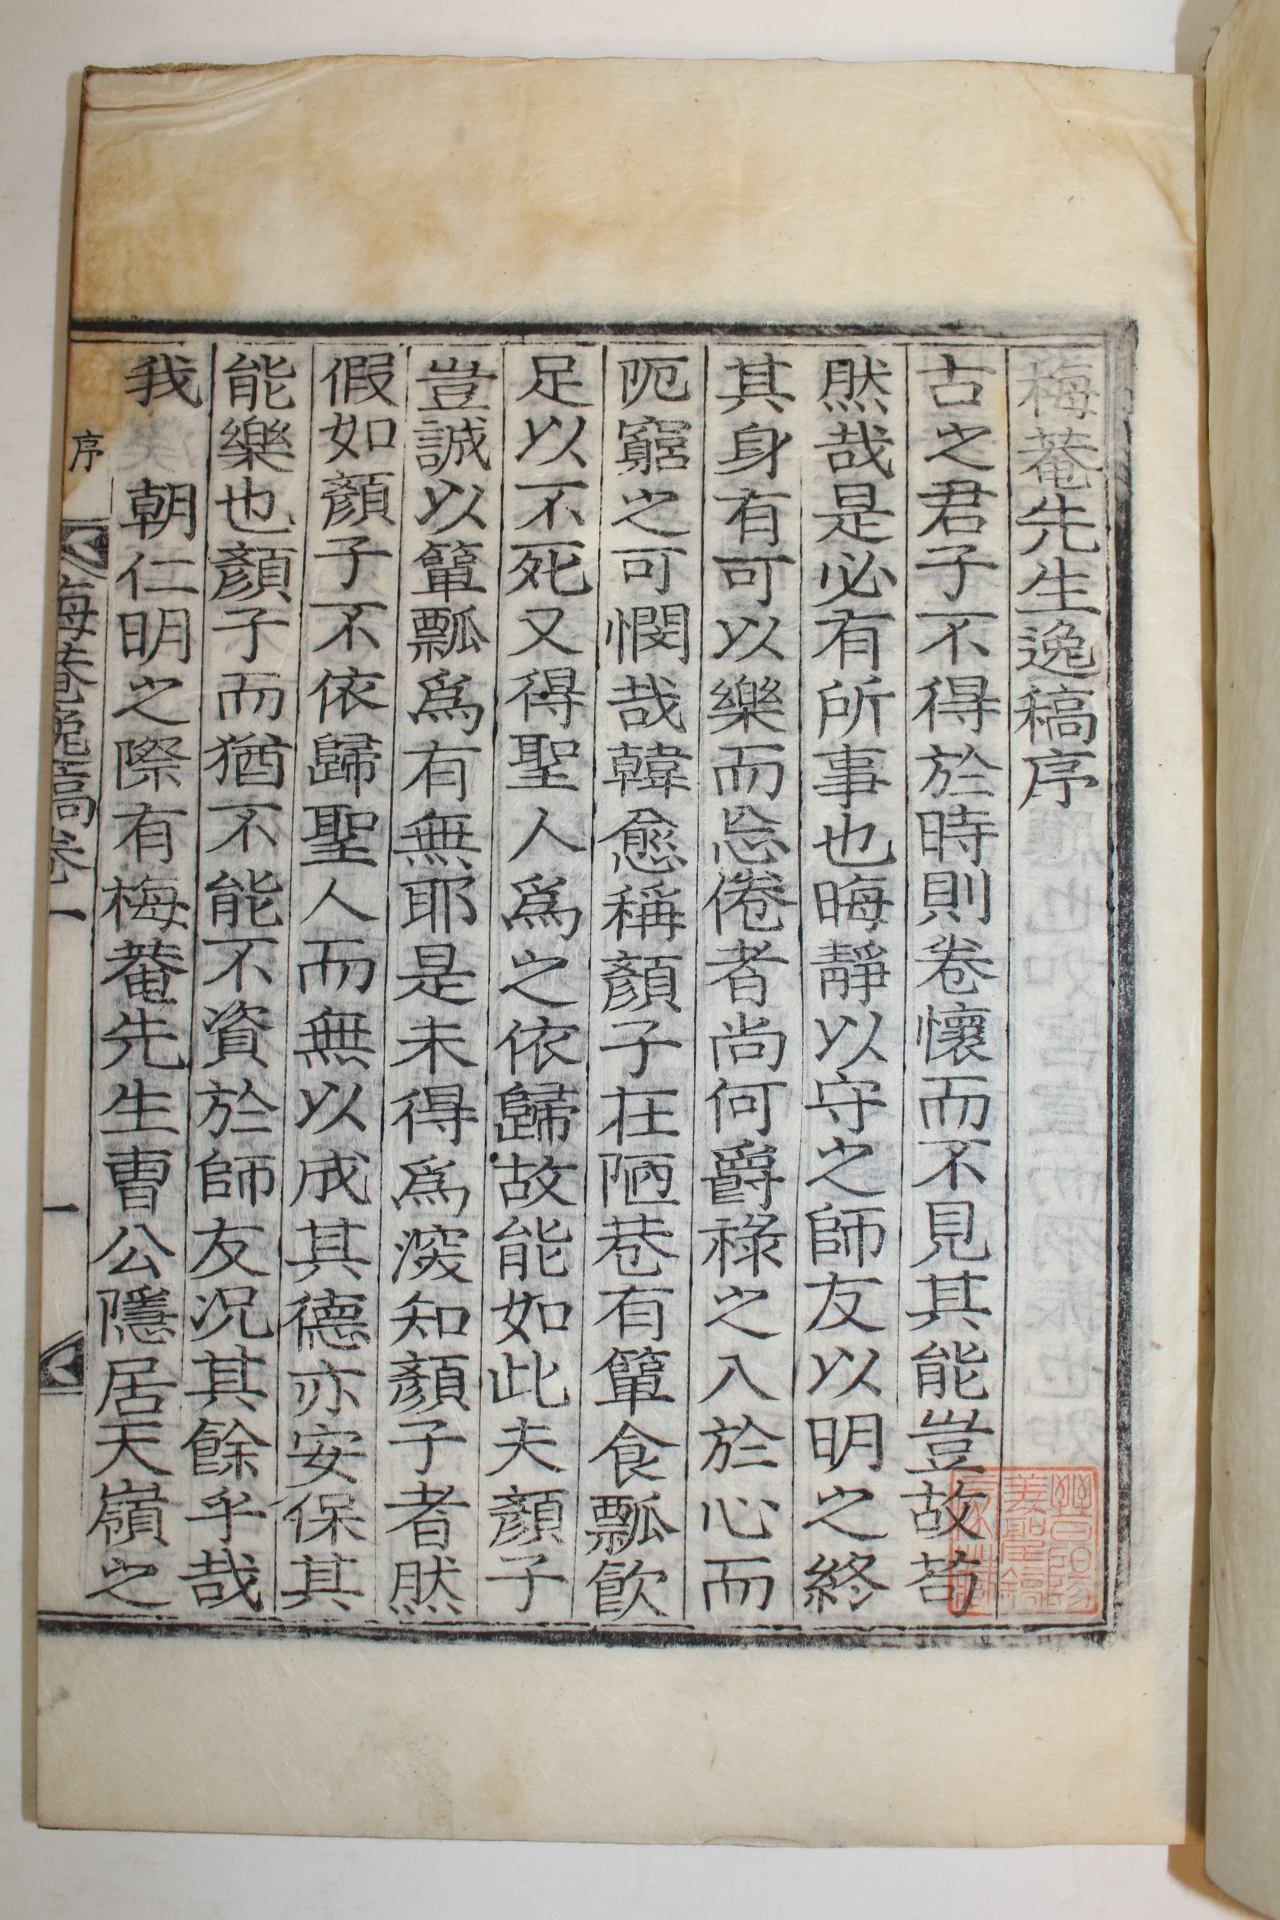 梅菴先生逸稿序
古之君子不得於時則卷懷而不見其能豈故苟
然哉是必有所事也晦靜以守之師友以明之終
其身有可以樂而忘倦者尚何爵祿之入於心而
阨窮之可憫哉韓愈稱顏子在陋巷有簞食瓢飮
足以不死又得聖人爲之依歸故能如此夫顏子
豈誠以簞瓢爲有無耶是未得爲深知顏子者然
假如顏子不依歸聖人而無以成其德亦安保其
能樂也顏子而猶不能不資於師友况其餘乎哉
我 朝仁明之際有梅菴先生曺公隱居天嶺之
序
梅菴逸稿卷一
一